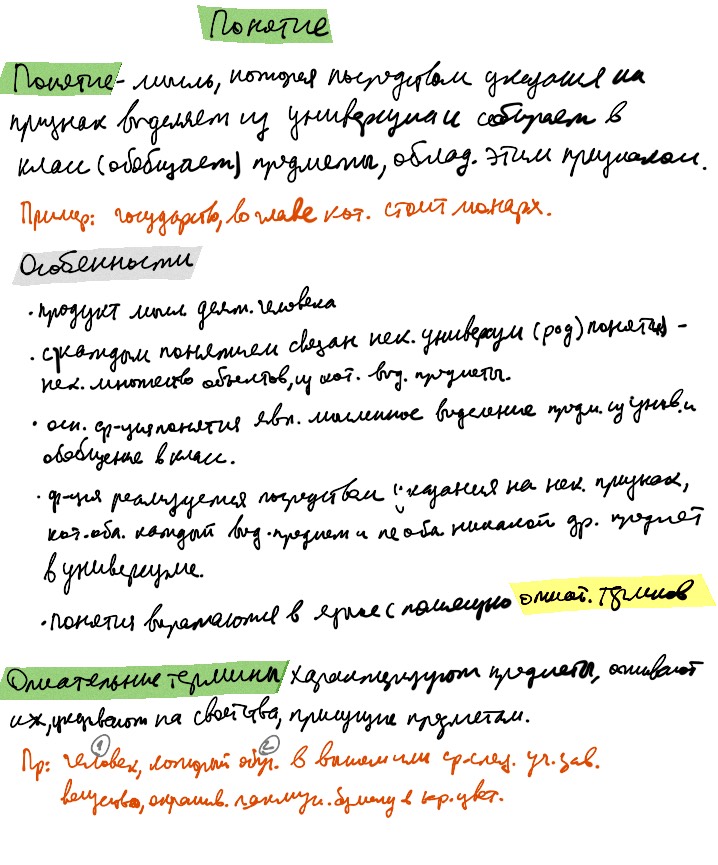 Понятие
Понятие - мысль, которая посредством указания на
признак выделяет из универсума и собирает в
класс (обобщает) предметы, облад. этим признаком.
Пример: государство, во главе кот. стоит монарх.
Особенности
• продукт мысл деят. человека
• с каждым понятием связан нек. универсум (род) понятия -
нек. множество объектов, из кот. выд. предметы.
• осн. ф-ция понятия явл. мысленное выделение предм. из унив. и
обобщение в класс.
• ф-ция реализуется посредством указания на нек. признак,
кот. обл. каждый выд. предмет и не обл. никакой др. предмет
в универсуме.
• понятия выражаются в языке с помощью описат. терминов
Описательные термины характеризуют предметы, описывают
их, указывают на свойства, присущие предметам.
1 2
Пр: человек, который обуч. в высшем или ср. спец. уч. зав.
вещество, окрашив. лакмус. бумагу в кр. цвет.